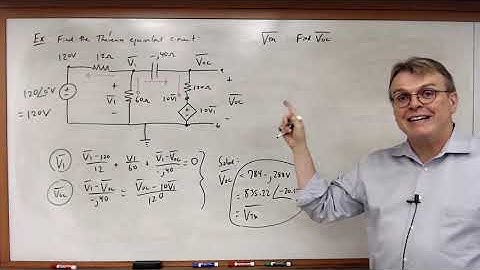 Ex Find the Thévenin equivalent circuit:
V̅Th Find V̅OC
120V 12Ω V̅1 -j40Ω V̅OC
120∠0°V
= 120V
+ V̅1 -
60Ω
120Ω
10V̅1
10V̅1
+ V̅OC -
V̅1 (V̅1-120)/12 + V̅1/60 + (V̅1-V̅OC)/-j40 = 0
V̅OC (V̅1-V̅OC)/-j40 = (V̅OC-10V̅1)/120
Solve:
V̅OC = 784-j288V
= 835.22
= V̅Th